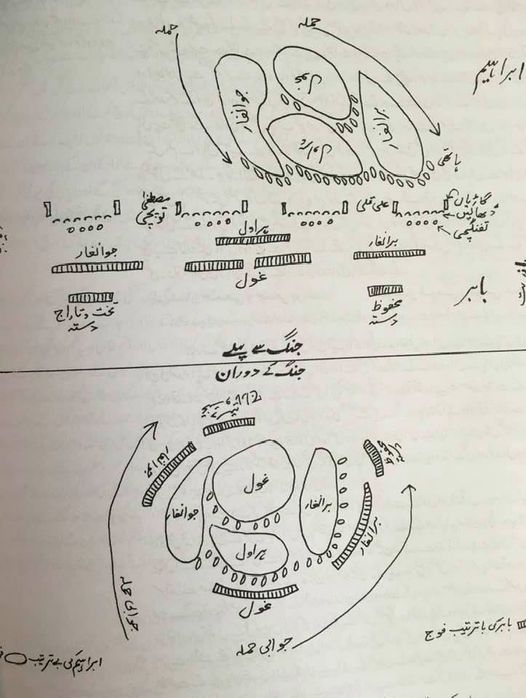 حملہ
حملہ
ابراہیم
جوانغار
برانغار
ہاتھی
گاڑیاں
مصطفٰی
توپچی
علی قلی
ڈھالیں
تفنگچی
ہراول
جوانغار
برانغار
غول
بابر
تخت و تاراج
دستہ
محفوظ
دستہ
جنگ سے پہلے
جنگ کے دوران
غول
جوانغار
برانغار
برانغار
ہراول
غول
جوابی حملہ
جوابی حملہ
بابر کی با ترتیب فوج
ابراہیم کی بے ترتیب